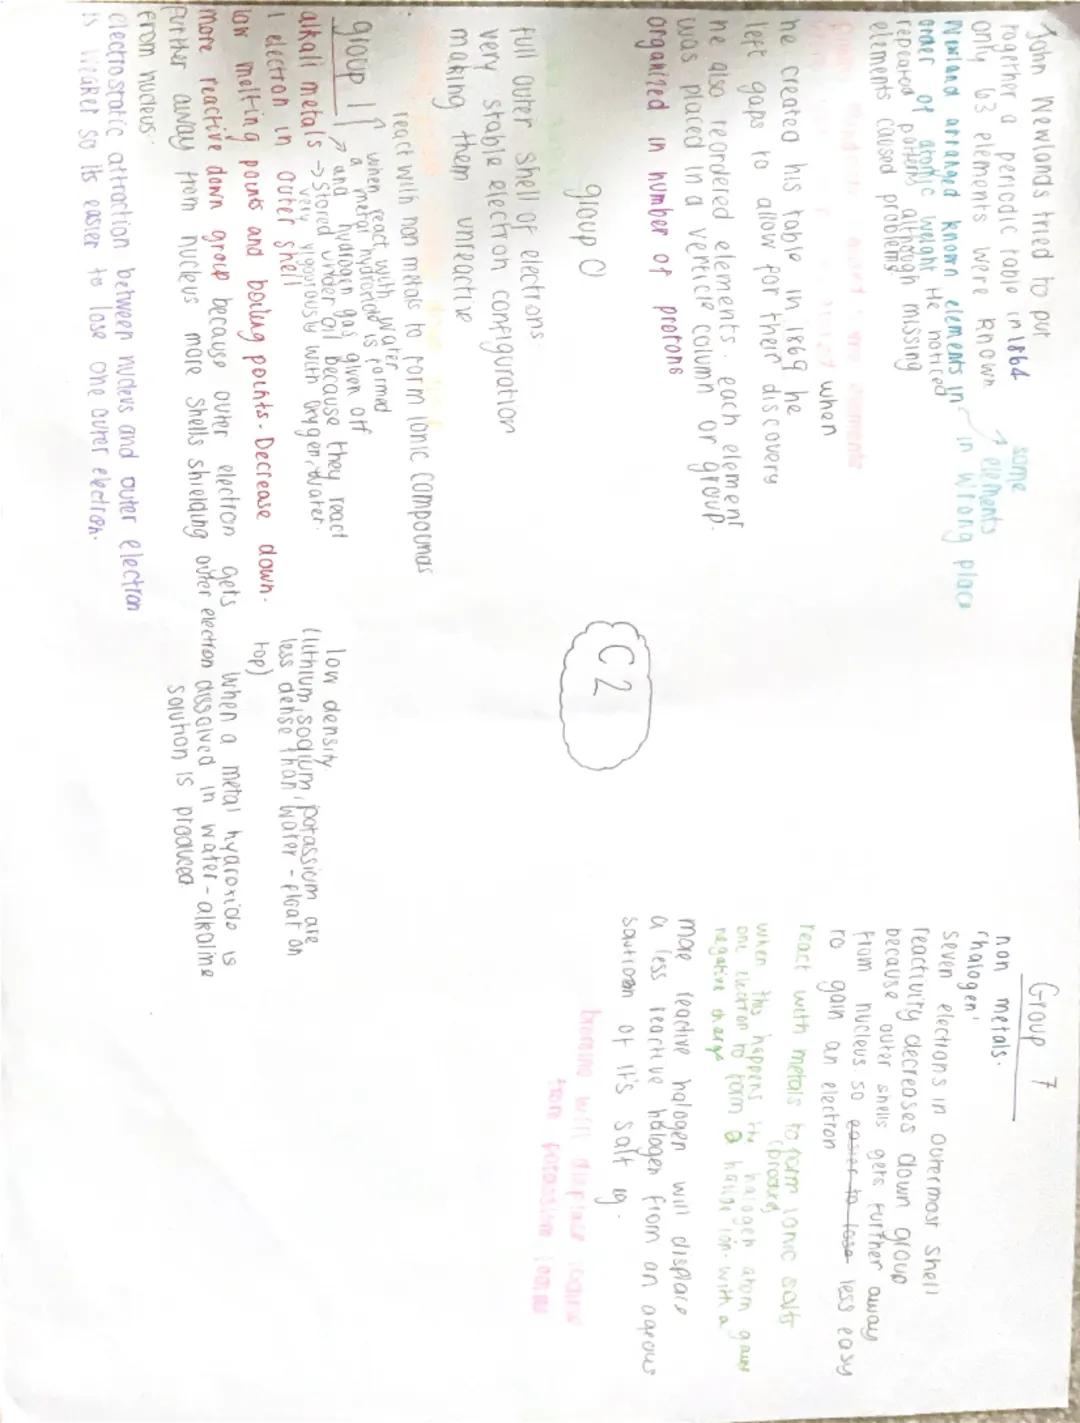 John Newlands tried to put
together a periodic table in 1864
only 63 elements were known
Newland arranged known elements in
order of atomic weight He noticed
repeated patterns although missing
elements caused problems
some
elements
in wrong place
when
he created his table in 1869 he
left gaps to allow for their discovery
he also reordered elements. each element
was placed in a verticle column or group.
organized in number of protons
group 0
full outer shell of electrons
very stable electron configuration
making them unreactive
react with non metals to form ionic compounds
when react with water
a metal hydroxide is formed
and hydrogen gas given off
group 1
alkali metals → stored under oil because they react
very vigourously with oxygen, water.
1 electron in outer shell
low melting points and boiling points. Decrease down.
more reactive down group because outer electron gets
further away from nucleus more shells shielding outer electron
from nucleus.
electrostatic attraction between nucleus and outer electron
is weaker so its easier to lose one outer electron.
C2
low density
(lithium, sodium, potassium are
less dense than water - float on
top)
When a metal hydroxide is
dissolved in water - alkaline
solution is produced
Group 7
non metals.
'halogen'
seven electrons in outermost shell
reactivity decreases down group
because outer shells gets further away
from nucleus so easier to lose less easy
to gain an electron
react with metals to form ionic salts
when this happens the halogen atom gains
one electron to form a halide ion - with a
negative charge
more reactive halogen will displace
a less reactive halogen from an aqeous
soutioon of it's salt eg.
bromine will displace
from potassium